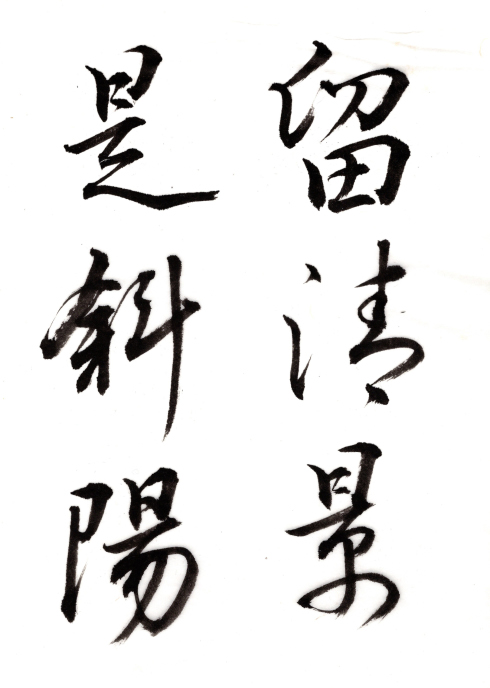 留清景
是斜陽